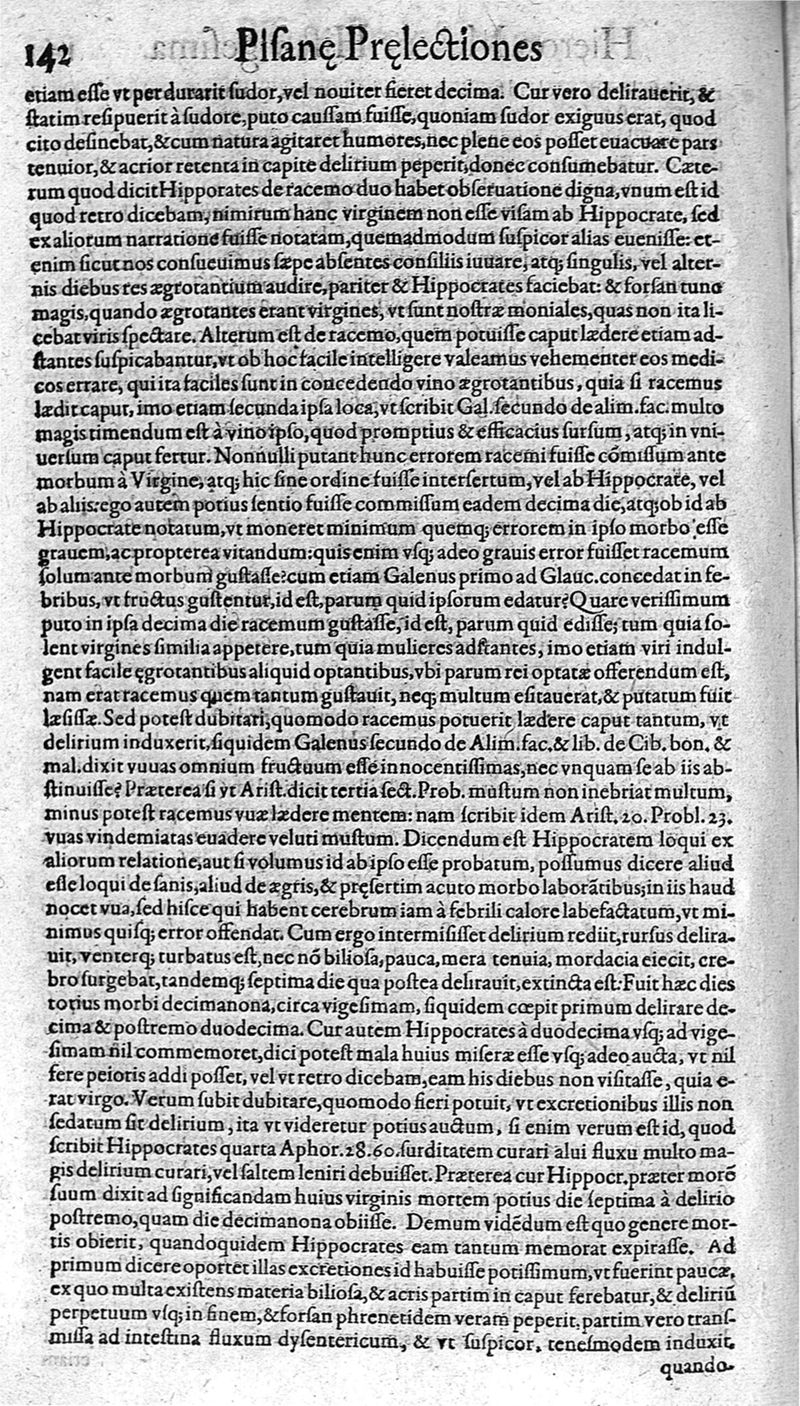 142 Pisanę Pręlectiones
etiam esse vt perdurarit sudor, vel nouiter fieret decima. Cur vero delirauerit, &
statim resipuerit à sudore, puto caussam fuisse, quoniam sudor exiguus erat, quod
cito desinebat, & cum natura agitaret humores, nec plene eos posset euacuare pars
tenuior, & acrior retenta in capite delirium peperit, donec consumebatur. Cæte-
rum quod dicit Hipporates de racemo duo habet obseruatione digna, vnum est id
quod retro dicebam, nimirum hanc virginem non esse visam ab Hippocrate, sed
ex aliorum narratione fuisse notatam, quemadmodum suspicor alias euenisse: et-
enim sicut nos consueuimus sæpe absentes consiliis iuuare, atq; singulis, vel alter-
nis diebus res ægrotantium audire, pariter & Hippocrates faciebat: & forsan tunc
magis, quando ægrotantes erant virgines, vt sunt nostræ moniales, quas non ita li-
cebat viris spectare. Alterum est de racemo, quem potuisse caput lædere etiam ad-
stantes suspicabantur, vt ob hoc facile intelligere valeamus vehementer eos medi-
cos errare, qui ita faciles sunt in concedendo vino ægrotantibus, quia si racemus
lædit caput, imo etiam secunda ipsa loca, vt scribit Gal. secundo de alim. fac. multo
magis timendum est à vino ipso, quod promptius & efficacius sursum, atq; in vni-
uersum caput fertur. Nonnulli putant hunc errorem racemi fuisse cõmissum ante
morbum à Virgine, atq; hic sine ordine fuisse intersertum, vel ab Hippocrate, vel
ab aliis: ego autem potius sentio fuisse commissum eadem decima die, atq; ob id ab
Hippocrate notatum, vt moneret minimum quemq; errorem in ipso morbo esse
grauem, ac propterea vitandum: quis enim vsq; adeo grauis error fuisset racemum
solum ante morbum gustasse? cum etiam Galenus primo ad Glauc. concedat in fe-
bribus, vt fructus gustentur, id est, parum quid ipsorum edatur? Quare verissimum
puto in ipsa decima die racemum gustasse, id est, parum quid edisse; tum quia so-
lent virgines similia appetere, tum quia mulieres adstantes, imo etiam viri indul-
gent facile ęgrotantibus aliquid optantibus, vbi parum rei optatæ offerendum est,
nam erat racemus quem tantum gustauit, neq; multum esitauerat, & putatum fuit
læsisse. Sed potest dubitari, quomodo racemus potuerit lædere caput tantum, vt
delirium induxerit, siquidem Galenus secundo de Alim. fac. & lib. de Cib. bon. &
mal. dixit vuuas omnium fructuum esse innocentissimas, nec vnquam se ab iis ab-
stinuisse? Præterea si vt Arist. dicit tertia sect. Prob. mustum non inebriat multum,
minus potest racemus vuæ lædere mentem: nam scribit idem Arist. 20. Probl. 23.
vuas vindemiatas euadere veluti mustum. Dicendum est Hippocratem loqui ex
aliorum relatione, aut si volumus id ab ipso esse probatum, possumus dicere aliud
esse loqui de sanis, aliud de ægris, & pręsertim acuto morbo laborãtibus; in iis haud
nocet vua, sed hisce qui habent cerebrum iam à febrili calore labefactatum, vt mi-
nimus quisq; error offendat. Cum ergo intermisisset delirium rediit, rursus delira-
uit, venterq; turbatus est, nec nõ biliosa, pauca, mera tenuia, mordacia eiecit, cre-
bro surgebat, tandemq; septima die qua postea delirauit, extincta est: Fuit hæc dies
totius morbi decimanona, circa vigesimam, siquidem cœpit primum delirare de-
cima & postremo duodecima. Cur autem Hippocrates à duodecima vsq; ad vige-
simam nil commemoret, dici potest mala huius miseræ esse vsq; adeo aucta, vt nil
fere peioris addi posset, vel vt retro dicebam, eam his diebus non visitasse, quia e-
rat virgo. Verum subit dubitare, quomodo fieri potuit, vt excretionibus illis non
sedatum sit delirium, ita vt videretur potius auctum, si enim verum est id, quod
scribit Hippocrates quarta Aphor. 28. 60. surditatem curari alui fluxu multo ma-
gis delirium curari, vel saltem leniri debuisset. Præterea cur Hippocr. præter morẽ
suum dixit ad significandam huius virginis mortem potius die septima à delirio
postremo, quam die decimanona obiisse. Demum vidẽdum est quo genere mor-
tis obierit, quandoquidem Hippocrates eam tantum memorat expirasse. Ad
primum dicere oportet illas excretiones id habuisse potissimum, vt fuerint paucæ,
ex quo multa existens materia biliosa, & acris partim in caput ferebatur, & deliriũ
perpetuum vsq; in finem, & forsan phrenetidem veram peperit, partim vero trans-
missa ad intestina fluxum dysentericum, & vt suspicor, tenesmodem induxit,
quando-